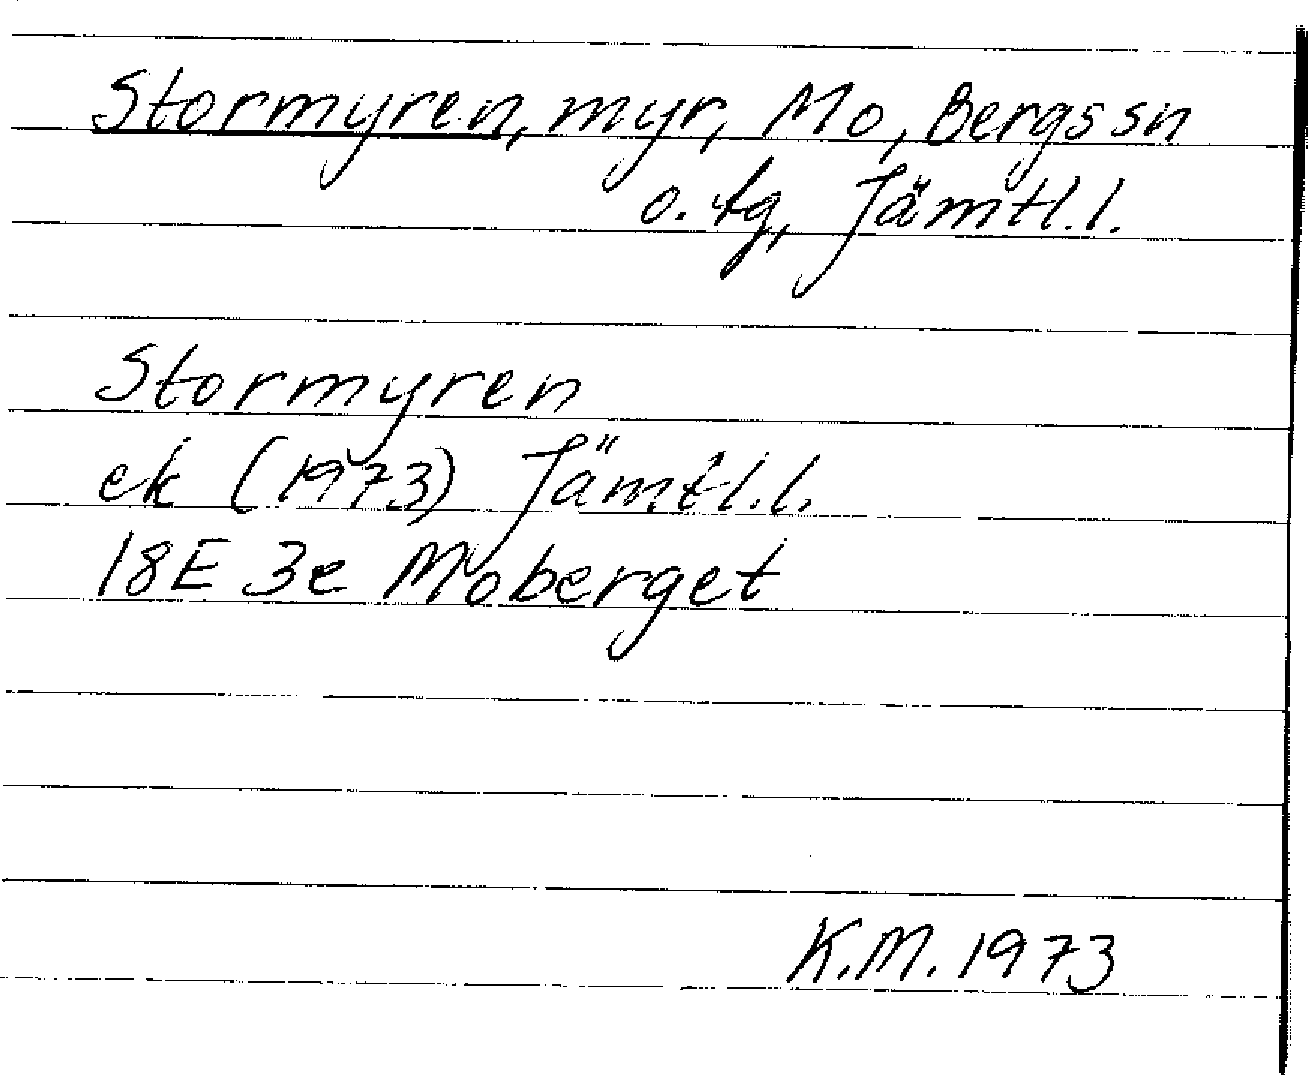 Stormyren, myr, Mo, Bergs sn
o. tg, Jämtl.l.
Stormyren
ek (1973) Jämtl.l.
18E 3e Moberget
K.M. 1973